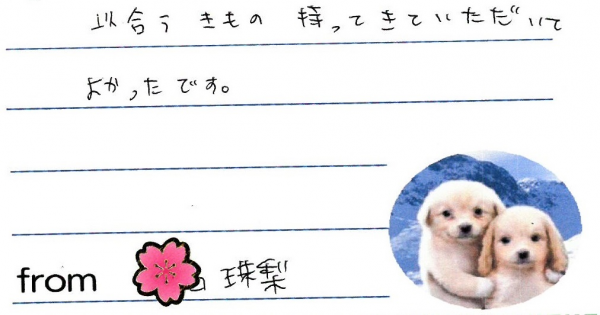 似合うきもの持ってきていただいて
よかったです。
from 珠梨